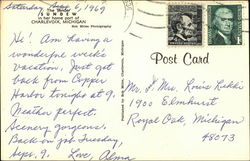 Saturday Sept 6, 1969
SUNDEW
in her home port of
CHARLEVOIX, MICHIGAN
Hi! Am having a
wonderful week's
vacation. Just got
back from Copper
Harbor tonight at 9.
Weather perfect.
Scenery gorgeous.
Back on job Tuesday,
Sept 9. Love, Alma
Post Card
Mr. & Mrs. Louis
1900 Elmhurst
Royal Oak, Michigan
48073